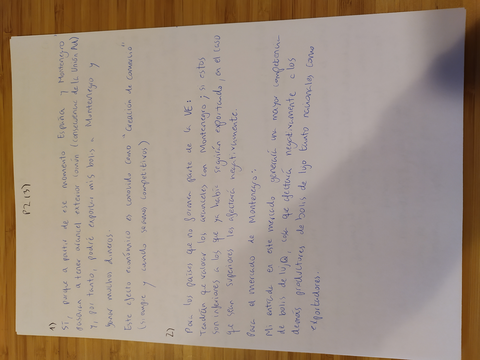 P2 (3)
1)
Sí, porque a partir de ese momento España y Montenegro
pasarían a tener arancel exterior común (consecuencia de la Unión Ad)
y, por tanto, podré exportar mis bolis a Montenegro y
ganar muchos dineros.
Este efecto económico es conocido como "Creación de Comercio"
(siempre y cuando seamos competitivos)
2)
Para los países que no formen parte de la UE:
Tendrán que valorar los aranceles con Montenegro; si estos
son inferiores a los que ya había seguirán exportando, en el caso
que sean superiores les afectará negativamente.
Para el mercado de Montenegro:
Mi entrada en este mercado generará una mayor competencia
de bolis de lujo, cosa que afectará negativamente a los
demás productores de bolis de lujo tanto nacionales como
exportadores.